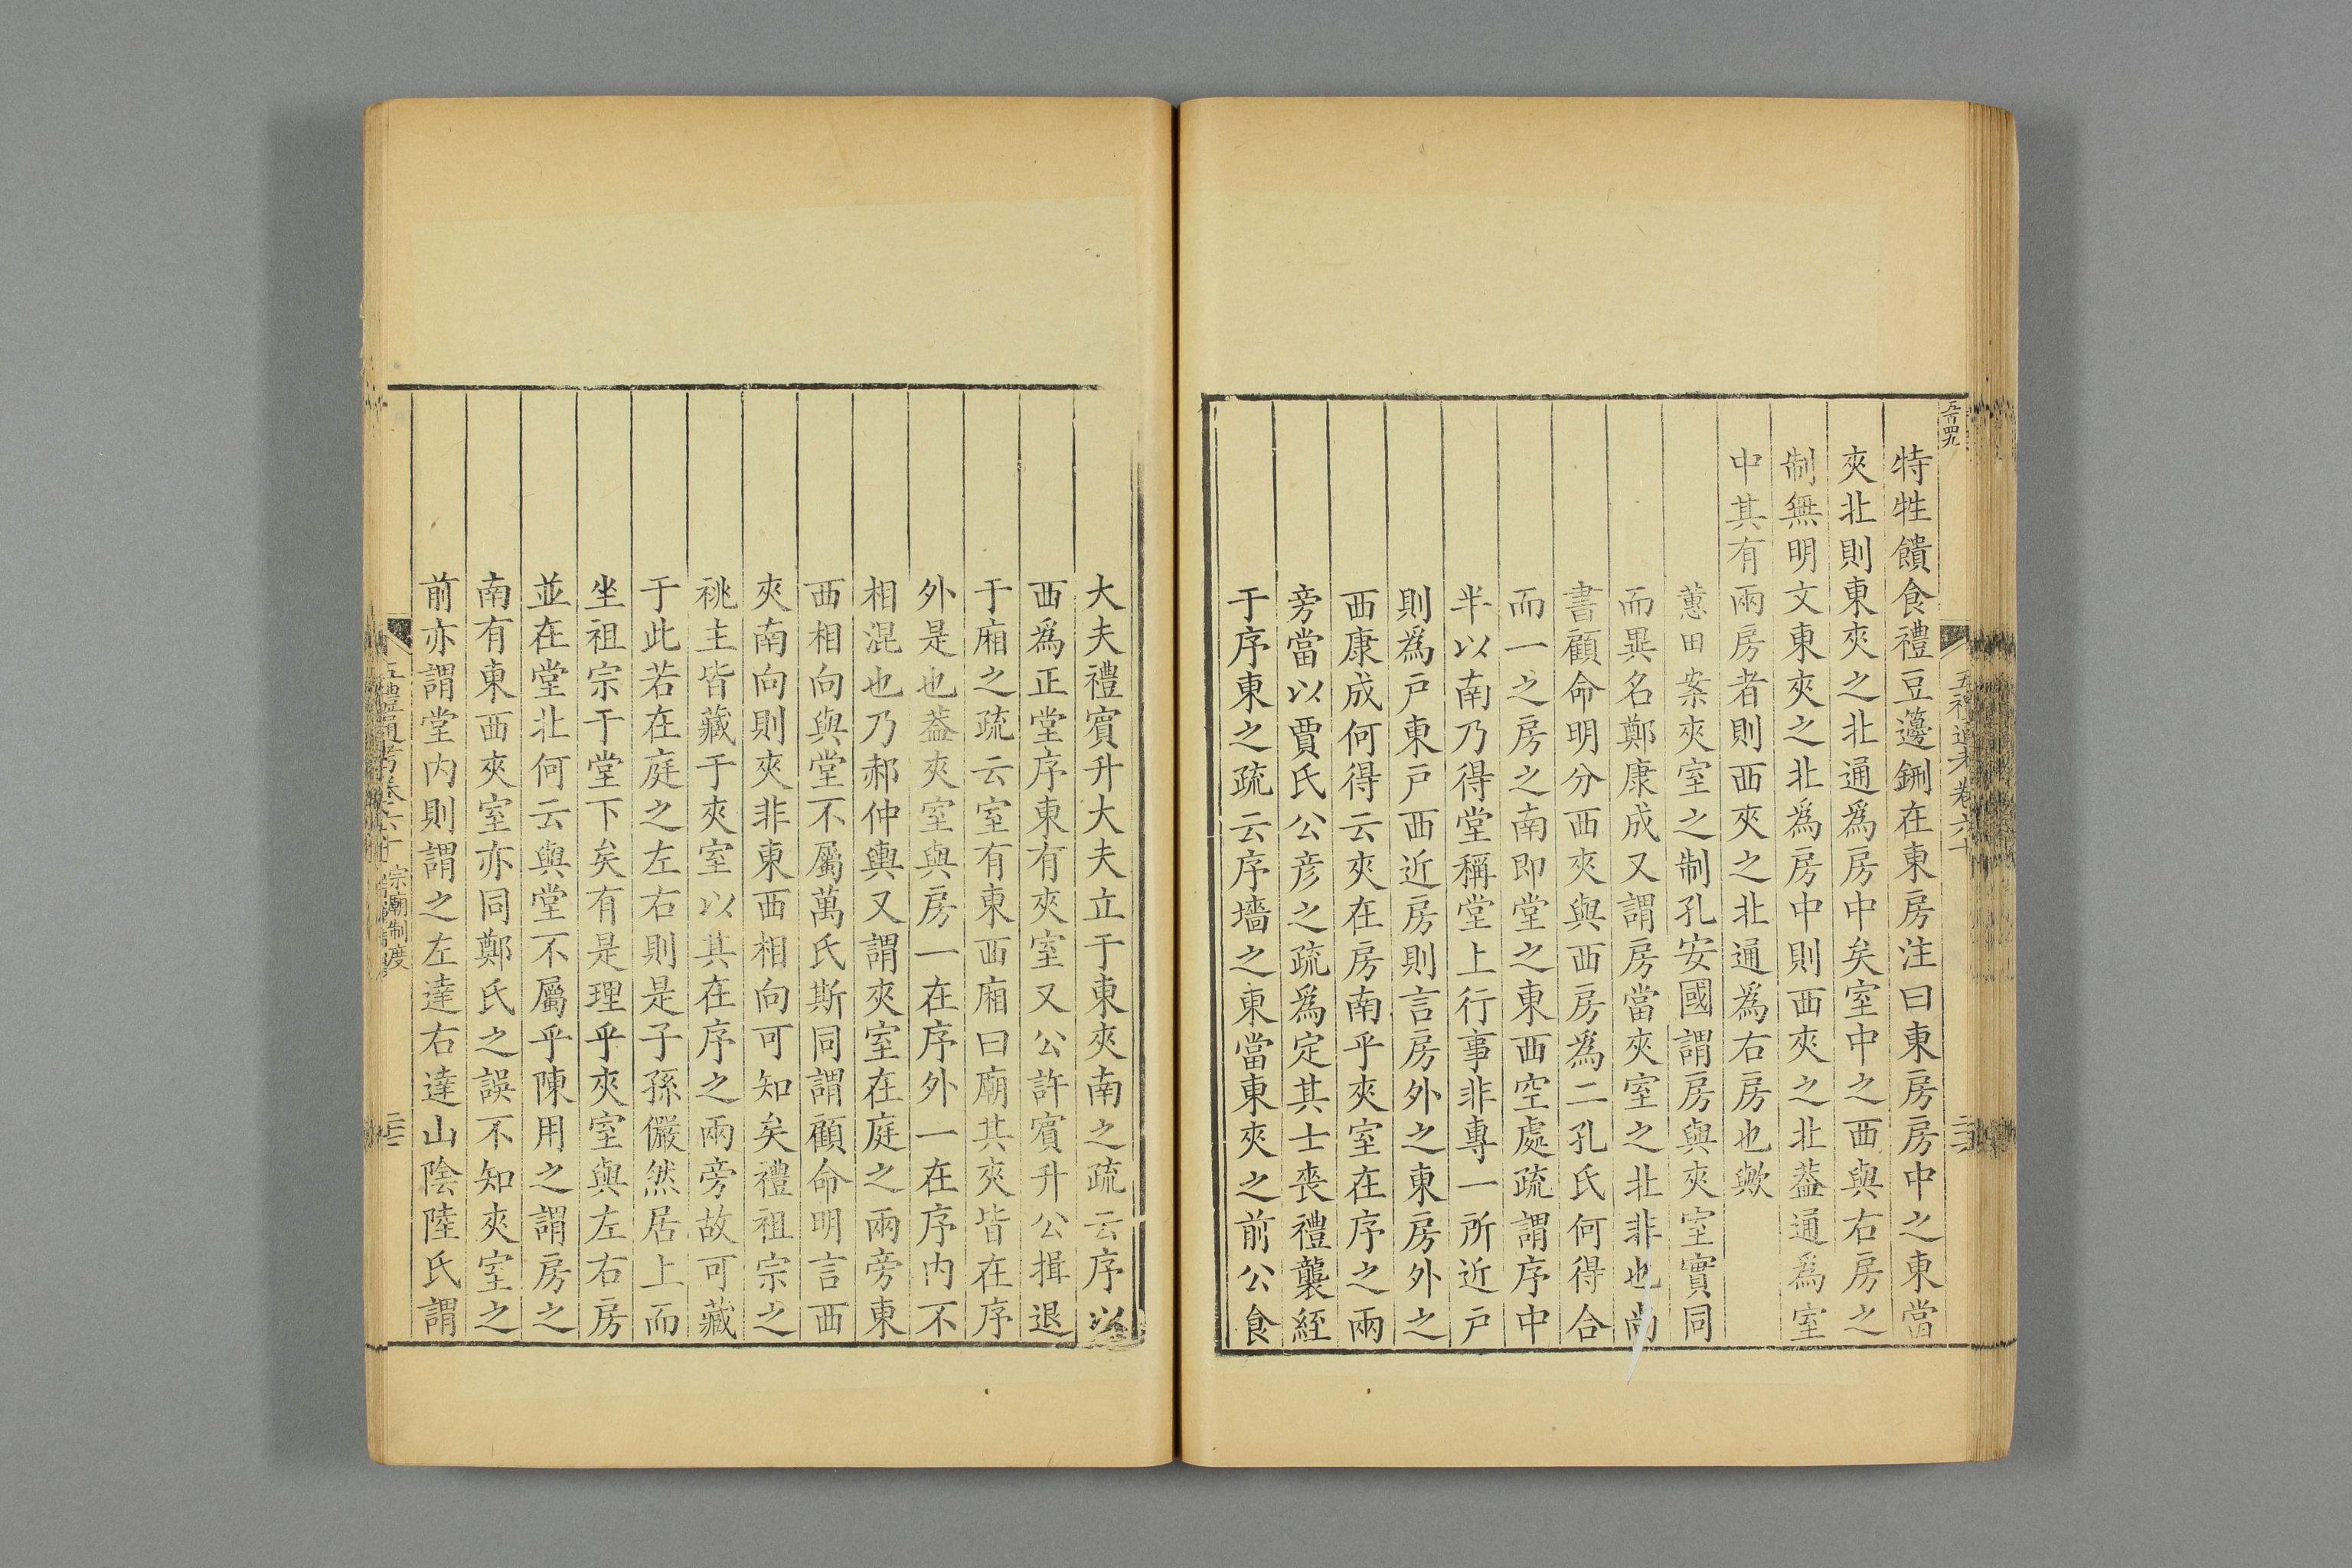 五百四九
特牲饋食禮豆籩鉶在東房注曰東房房中之東當
夾北則東夾之北通爲房中矣室中之西與右房之
制無明文東夾之北爲房中則西夾之北蓋通爲室
中其有兩房者則西夾之北通爲右房也歟
蕙田案夾室之制孔安國謂房與夾室實同
而異名鄭康成又謂房當夾室之北非也尚
書顧命明分西夾與西房爲二孔氏何得合
而一之房之南即堂之東西空處疏謂序中
半以南乃得堂稱堂上行事非專一所近戶
則爲戶東戶西近房則言房外之東房外之
西康成何得云夾在房南乎夾室在序之兩
旁當以賈氏公彥之疏爲定其士喪禮襲絰
于序東之疏云序墻之東當東夾之前公食
大夫禮賓升大夫立于東夾南之疏云序以
西爲正堂序東有夾室又公許賓升公揖退
于廂之疏云室有東西廂曰廟其夾皆在序
外是也蓋夾室與房一在序外一在序内不
相混也乃郝仲輿又謂夾室在庭之兩旁東
西相向與堂不屬萬氏斯同謂顧命明言西
夾南向則夾非東西相向可知矣禮祖宗之
祧主皆藏于夾室以其在序之兩旁故可藏
于此若在庭之左右則是子孫儼然居上而
坐祖宗于堂下矣有是理乎夾室與左右房
並在堂北何云與堂不屬乎陳用之謂房之
南有東西夾室亦同鄭氏之誤不知夾室之
前亦謂堂内則謂之左達右達山陰陸氏謂
五禮通考卷六十
宗廟制度